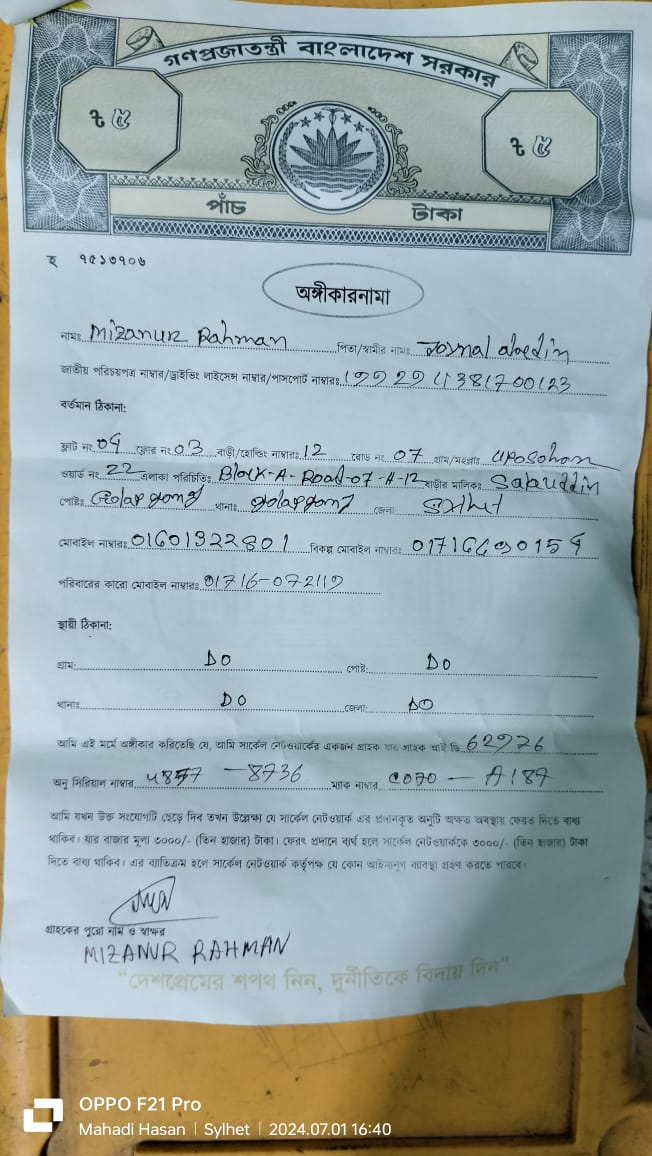 গণপ্রজাতন্ত্রী বাংলাদেশ সরকার
৳ ৫ ৳ ৫
পাঁচ টাকা
হ ৭৫১৩৭০৬
অঙ্গীকারনামা
নামঃ Mizanur Rahman পিতা/স্বামীর নামঃ abedin
জাতীয় পরিচয়পত্র নাম্বার/ড্রাইভিং লাইসেন্স নাম্বার/পাসপোর্ট নাম্বারঃ
বর্তমান ঠিকানা:
ফ্লাট নং 04 ফ্লোর নং 03 বাড়ী/হোল্ডিং নাম্বারঃ 12 রোড নং 07 গ্রাম/মহল্লাঃ uposohon
ওয়ার্ড নং 22 এলাকা পরিচিতিঃ Block-A-Road-07-H-12 বাড়ীর মালিকঃ Salauddin
পোষ্টঃ Golapgonj থানাঃ golapgonj জেলাঃ Sylhet
মোবাইল নাম্বারঃ 01601322801 বিকল্প মোবাইল নাম্বারঃ
পরিবারের কারো মোবাইল নাম্বারঃ 01716-072119
স্থায়ী ঠিকানা:
গ্রাম: DO পোষ্ট: DO
থানাঃ DO জেলা: DO
আমি এই মর্মে অঙ্গীকার করিতেছি যে, আমি সার্কেল নেটওয়ার্কের একজন গ্রাহক যার গ্রাহক আই ডি 62926
অনু সিরিয়াল নাম্বার -8736 ম্যাক নাম্বার C070 - A187
আমি যখন উক্ত সংযোগটি ছেড়ে দিব তখন উল্লেক্ষ্য যে সার্কেল নেটওয়ার্ক এর প্রদানকৃত অনুটি অক্ষত অবস্থায় ফেরত দিতে বাধ্য
থাকিব। যার বাজার মূল্য ৩০০০/- (তিন হাজার) টাকা। ফেরৎ প্রদানে ব্যর্থ হলে সার্কেল নেটওয়ার্ককে ৩০০০/- (তিন হাজার) টাকা
দিতে বাধ্য থাকিব। এর ব্যতিক্রম হলে সার্কেল নেটওয়ার্ক কর্তৃপক্ষ যে কোন আইনানুগ ব্যবস্থা গ্রহণ করতে পারবে।
গ্রাহকের পুরো নাম ও স্বাক্ষর
MIZANUR RAHMAN
“দেশপ্রেমের শপথ নিন, দুর্নীতিকে বিদায় দিন”
OPPO F21 Pro
Mahadi Hasan | Sylhet | 2024.07.01 16:40